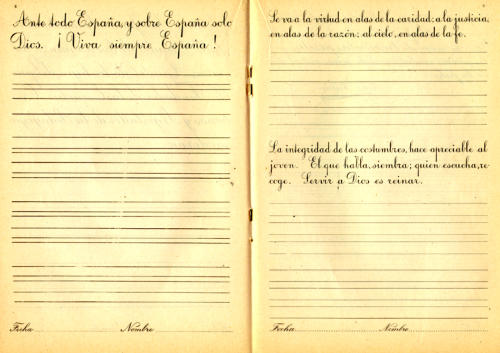 Ante todo España, y sobre España solo
Dios. ¡Viva siempre España!
Fecha Nombre
Se va a la virtud en alas de la caridad; a la justicia,
en alas de la razón; al cielo, en alas de la fe.
La integridad de las costumbres, hace apreciable al
joven. El que habla, siembra; quien escucha, re-
coge. Servir a Dios es reinar.
Fecha Nombre